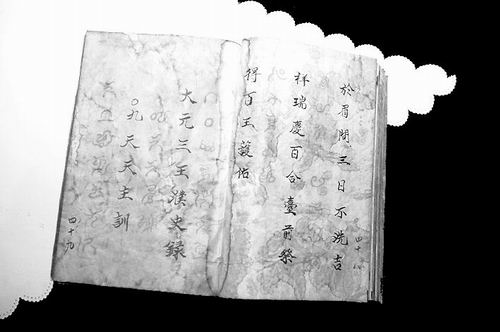 於眉間三日不洗吉
四十八
祥瑞慶百合臺前祭
得百王護佑
大元三王濮史錄
○九天天主訓
四十九